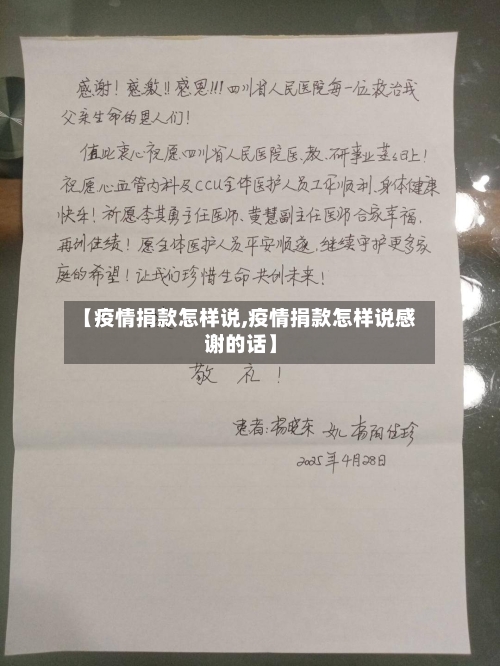 感谢！感激!!感恩!!!四川省人民医院每一位救治我
父亲生命的恩人们！
值此衷心祝愿四川省人民医院医、教、研事业蒸蒸日上！
祝愿心血管内科及CCU全体医护人员工作顺利、身体健康
快乐！祈愿李其勇主任医师、黄慧副主任医师合家幸福，
再创佳绩！愿全体医护人员平安顺遂，继续守护更多家
庭的希望！让我们珍惜生命共创未来！
【疫情捐款怎样说,疫情捐款怎样说感
谢的话】
敬礼！
患者：杨晓东 女儿 杨
2025年4月28日